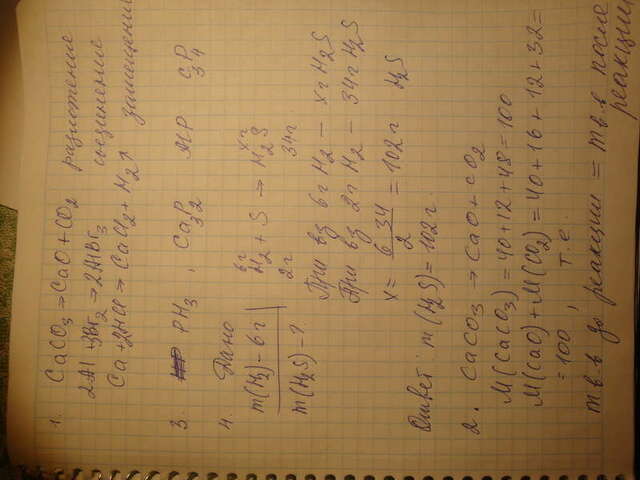 1. CaCO3 → CaO + CO2 разложение
2Al + 3Br2 → 2AlBr3 соединение
Ca + 2HCl → CaCl2 + H2↑ замещение
3. PH3, Ca3P2 AlP C3P4
4. Дано
m(H2) - 6г
m(H2S) - ?
6г xг
H2 + S → H2S
2г 34г
При вз 6г H2 — xг H2S
При вз 2г H2 — 34г H2S
x = 6 34 / 2 = 102г H2S
Ответ: m(H2S) = 102г
2. CaCO3 → CaO + CO2
M(CaCO3) = 40+12+48 = 100
M(CaO) + M(CO2) = 40+16+12+32 =
= 100, т.е.
m в.в до реакции = m в.в после
реакции